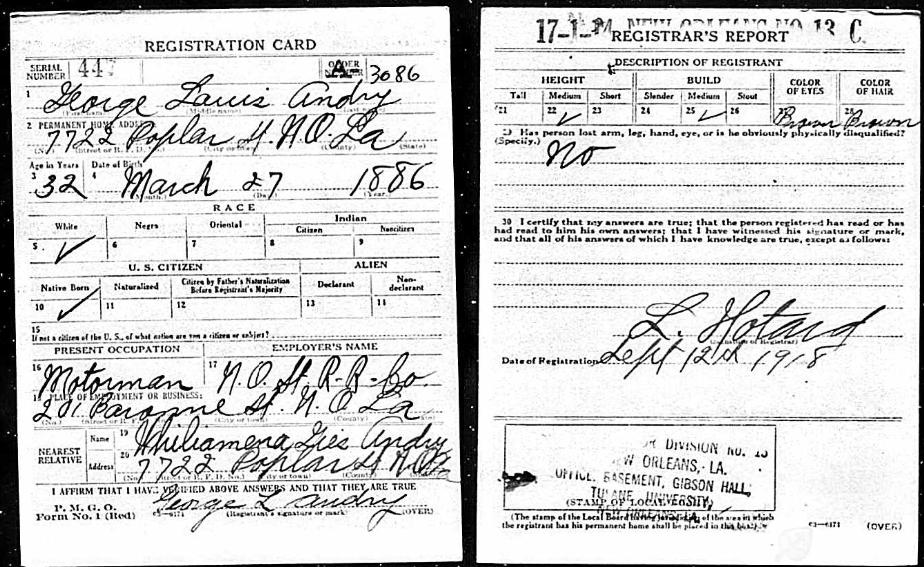 REGISTRATION CARD
SERIAL NUMBER 447 ORDER NUMBER A 3086
1 George Louis Andry
2 PERMANENT HOME ADDRESS:
7722 Poplar St. N.O. La
(No.) (Street or R. F. D. No.) (City or town) (County) (State)
Age in Years Date of Birth
3 32 4 March 27 1886
(Month.) (Day.) (Year.)
RACE
White Negro Oriental Indian
Citizen Noncitizen
5 ✓ 6 7 8 9
U. S. CITIZEN ALIEN
Native Born Naturalized Citizen by Father's Naturalization Before Registrant's Majority Declarant Non-declarant
10 ✓ 11 12 13 14
15
If not a citizen of the U. S., of what nation are you a citizen or subject?
PRESENT OCCUPATION EMPLOYER'S NAME
16 Motorman 17 N.O. St. R-R-Co.
18 PLACE OF EMPLOYMENT OR BUSINESS:
201 Baronne St. N.O. La
(No.) (Street or R. F. D. No.) (City or town) (County) (State)
NEAREST RELATIVE
Name 19 Whiliamena Gies Andry
Address 20 7722 Poplar St N.O. La
(No.) (Street or R. F. D. No.) (City or town) (County)
I AFFIRM THAT I HAVE VERIFIED ABOVE ANSWERS AND THAT THEY ARE TRUE
P. M. G. O.
Form No. 1 (Red) George L Andry
03—6171 (Registrant's signature or mark) (OVER)
17-1-24 NEW ORLEANS NO 13 C.
REGISTRAR'S REPORT
DESCRIPTION OF REGISTRANT
HEIGHT BUILD COLOR OF EYES COLOR OF HAIR
Tall Medium Short Slender Medium Stout
21 22 ✓ 23 24 25 ✓ 26 27 Brown 28 Brown
29 Has person lost arm, leg, hand, eye, or is he obviously physically disqualified?
(Specify.) No
30 I certify that my answers are true; that the person registered has read or has
had read to him his own answers; that I have witnessed his signature or mark,
and that all of his answers of which I have knowledge are true, except as follows:
L. Hotard
(Signature of Registrar)
Date of Registration Sept 12th 1918
DIVISION NO. 13
NEW ORLEANS, LA.
OFFICE, BASEMENT, GIBSON HALL,
TULANE UNIVERSITY,
NEW ORLEANS, LA.
(STAMP OF LOCAL BOARD)
(The stamp of the Local Board having jurisdiction of the area in which
the registrant has his permanent home shall be placed in this box.)
03—6171 (OVER)